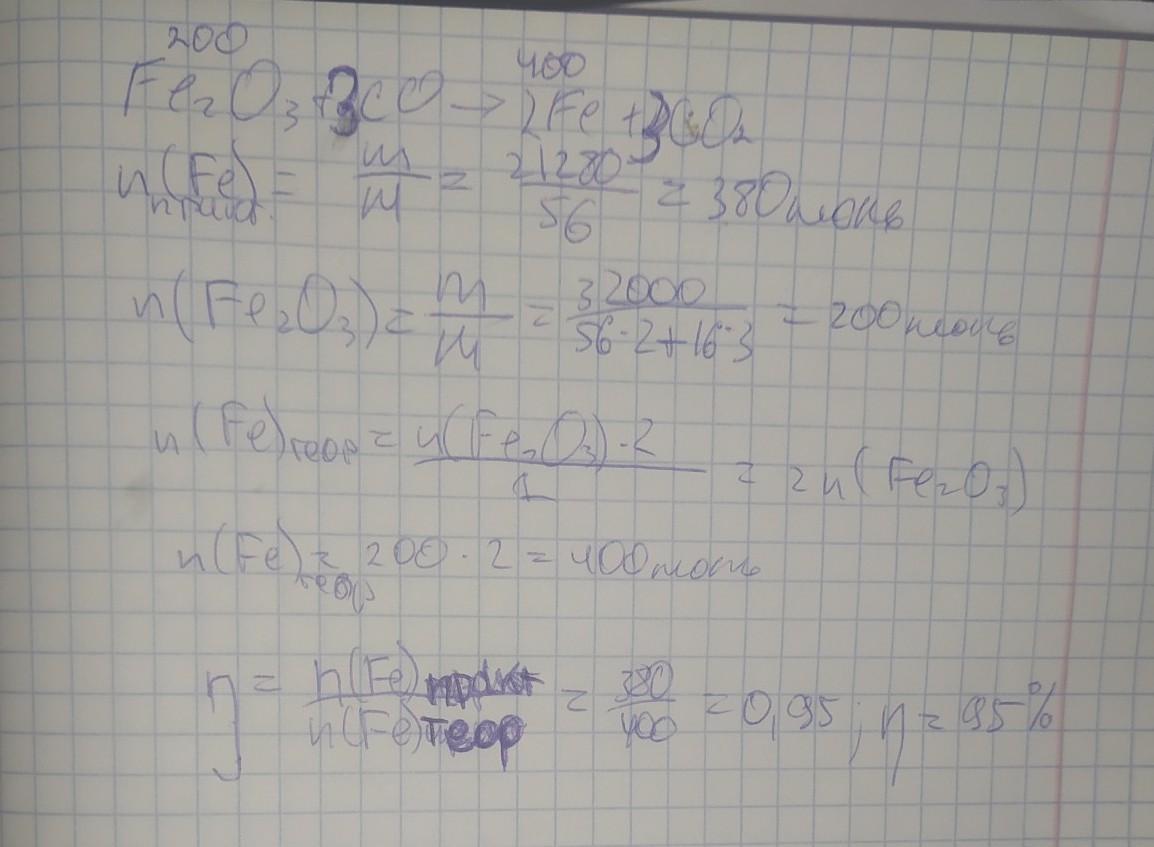 200 400
Fe₂O₃ + 3CO → 2Fe + 3CO₂
n(Fe)практ. = m/M = 21280/56 = 380 моль
n(Fe₂O₃) = m/M = 32000/56·2+16·3 = 200 моль
n(Fe)теор = n(Fe₂O₃)·2/1 = 2n(Fe₂O₃)
n(Fe)теор = 200 · 2 = 400 моль
η = n(Fe)практ/n(Fe)теор = 380/400 = 0,95; η = 95%